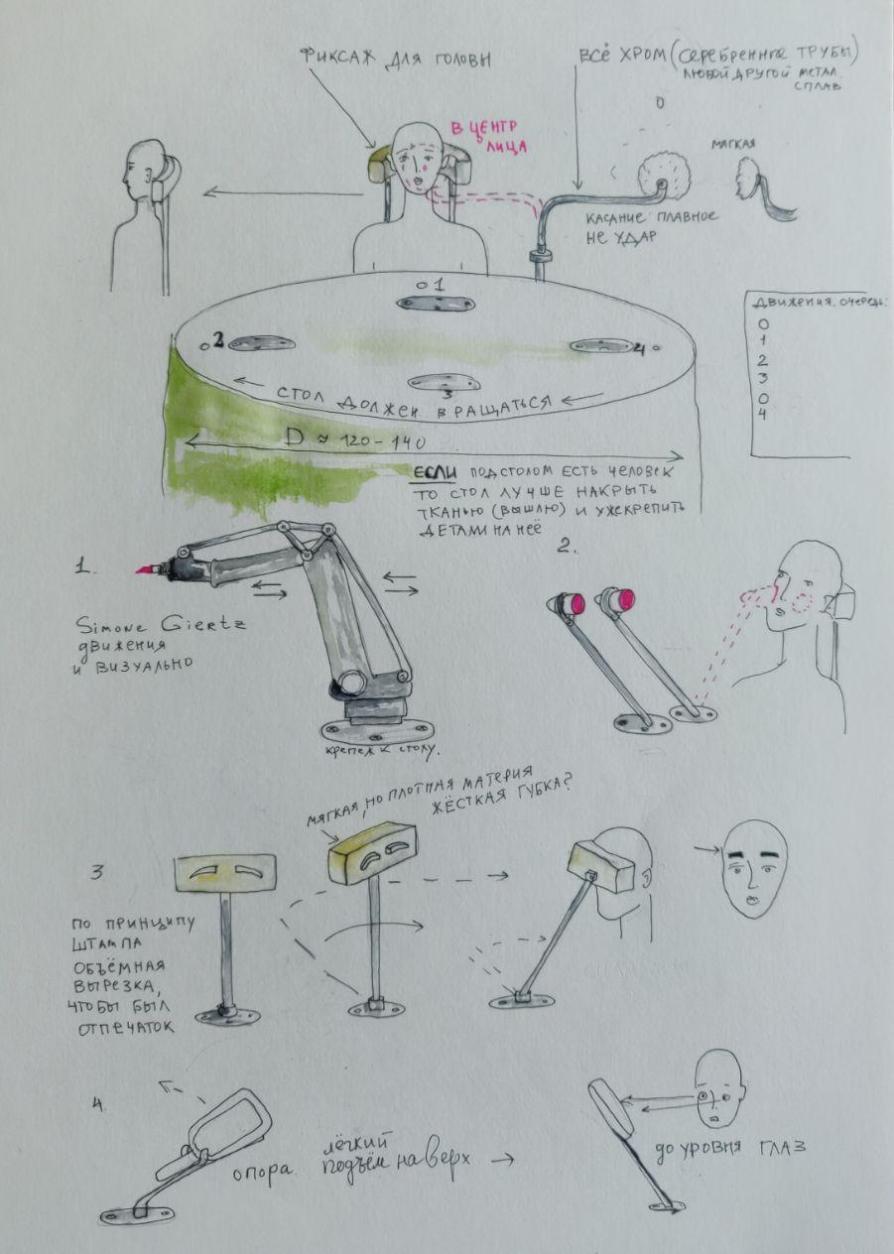 ФИКСАЖ ДЛЯ ГОЛОВЫ
ВСЁ ХРОМ (СЕРЕБРЕННЫЕ ТРУБЫ)
ЛЮБОЙ ДРУГОЙ МЕТАЛ.
СПЛАВ
В ЦЕНТР
ЛИЦА
0
МЯГКАЯ
КАСАНИЕ ПЛАВНОЕ
НЕ УДАР
01
02
4
3
СТОЛ ДОЛЖЕН ВРАЩАТЬСЯ
D ≈ 120 - 140
ДВИЖЕНИЯ. ОЧЕРЕДЬ:
0
1
2
3
0
4
ЕСЛИ ПОД СТОЛОМ ЕСТЬ ЧЕЛОВЕК
ТО СТОЛ ЛУЧШЕ НАКРЫТЬ
ТКАНЬЮ (ВЫШЛЮ) И УЖЕ КРЕПИТЬ
ДЕТАЛИ НА НЕЁ
1.
Simone Giertz
движения
и визуально
крепёж к столу.
2.
3
МЯГКАЯ, НО ПЛОТНАЯ МАТЕРИЯ
ЖЁСТКАЯ ГУБКА?
ПО ПРИНЦИПУ
ШТАМПА
ОБЪЁМНАЯ
ВЫРЕЗКА,
ЧТОБЫ БЫЛ
ОТПЕЧАТОК
4.
опора
лёгкий
подъём наверх
до уровня глаз